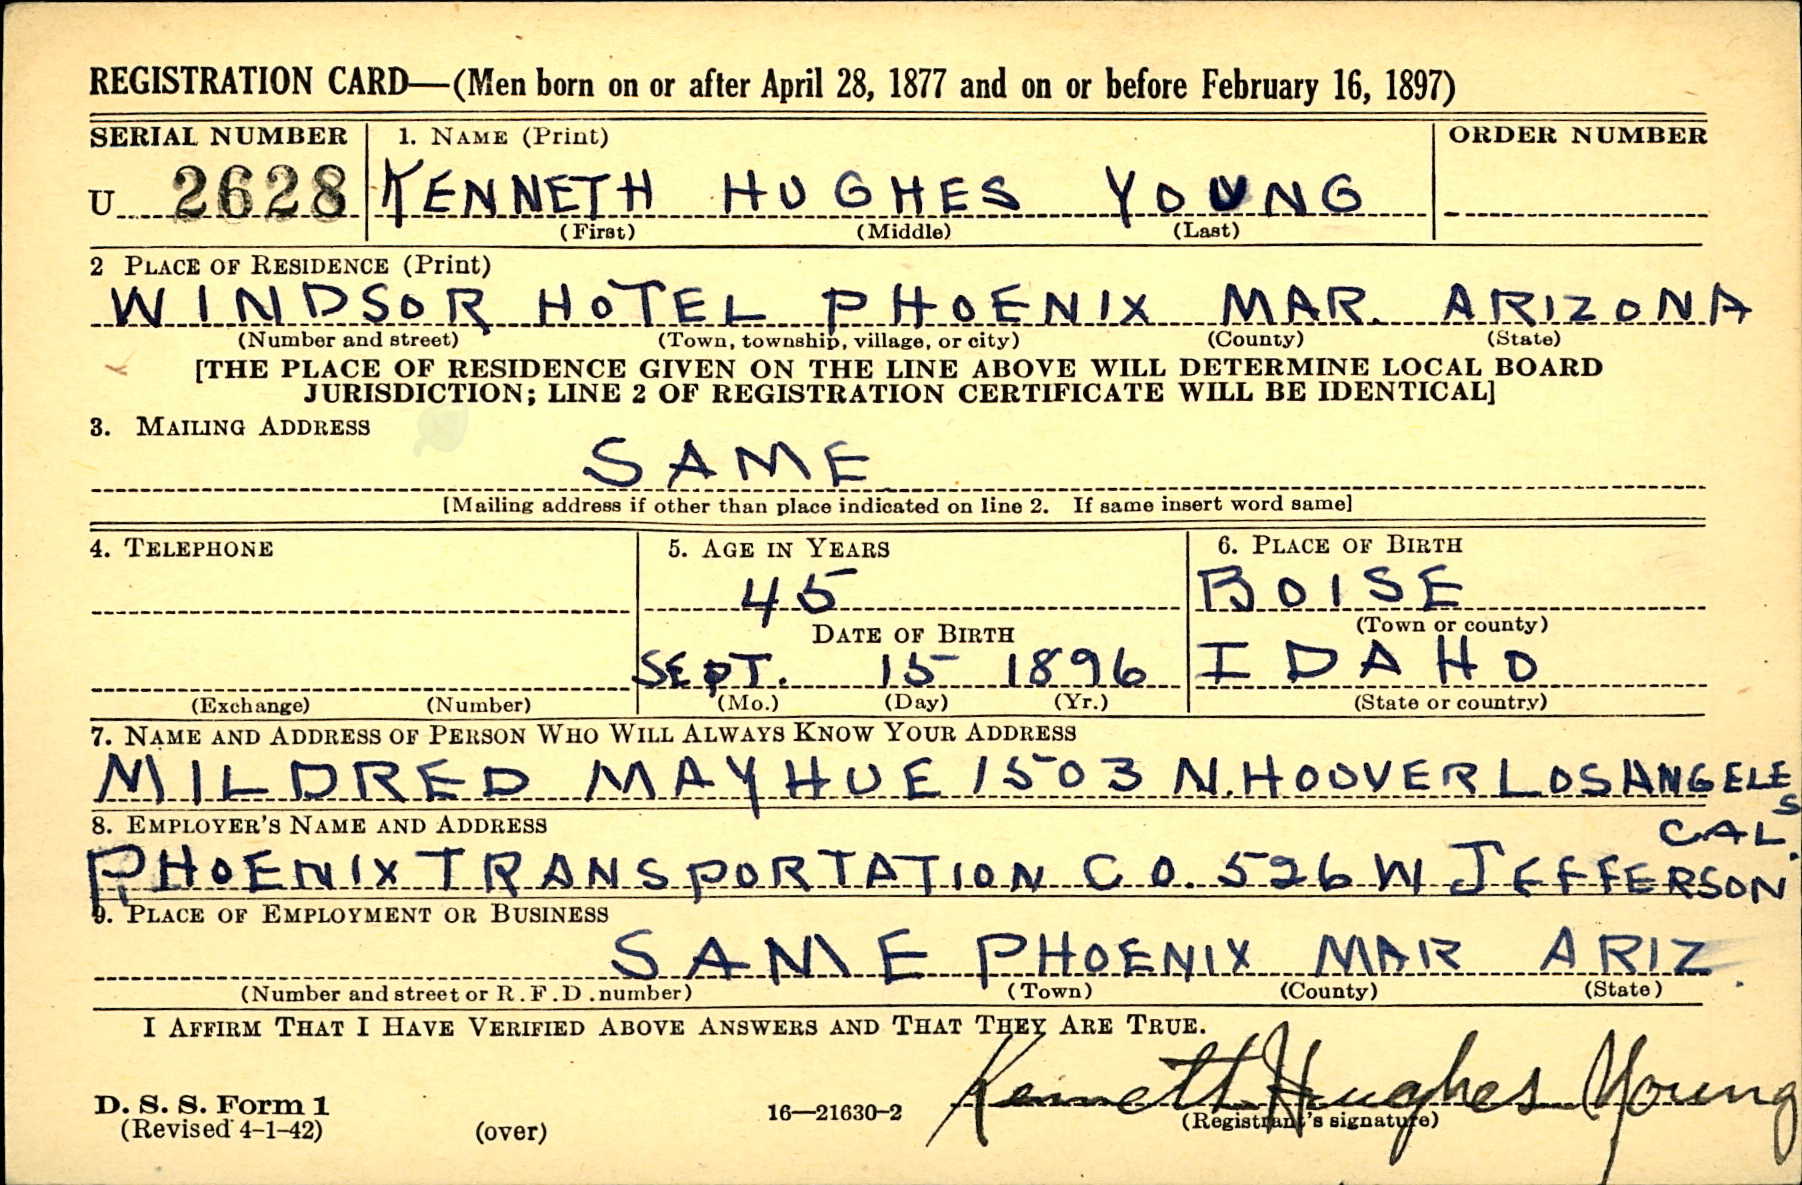 REGISTRATION CARD—(Men born on or after April 28, 1877 and on or before February 16, 1897)
SERIAL NUMBER 1. NAME (Print) ORDER NUMBER
U 2628 KENNETH HUGHES YOUNG
(First) (Middle) (Last)
2 PLACE OF RESIDENCE (Print)
WINDSOR HOTEL PHOENIX MAR. ARIZONA
(Number and street) (Town, township, village, or city) (County) (State)
[THE PLACE OF RESIDENCE GIVEN ON THE LINE ABOVE WILL DETERMINE LOCAL BOARD
JURISDICTION; LINE 2 OF REGISTRATION CERTIFICATE WILL BE IDENTICAL]
3. MAILING ADDRESS
SAME
[Mailing address if other than place indicated on line 2. If same insert word same]
4. TELEPHONE 5. AGE IN YEARS 6. PLACE OF BIRTH
45 BOISE
DATE OF BIRTH (Town or county)
SEPT. 15 1896 IDAHO
(Exchange) (Number) (Mo.) (Day) (Yr.) (State or country)
7. NAME AND ADDRESS OF PERSON WHO WILL ALWAYS KNOW YOUR ADDRESS
MILDRED MAYHUE 1503 N. HOOVER LOS ANGELES
8. EMPLOYER'S NAME AND ADDRESS CAL.
PHOENIX TRANSPORTATION CO. 526 W JEFFERSON
9. PLACE OF EMPLOYMENT OR BUSINESS
SAME PHOENIX MAR ARIZ.
(Number and street or R.F.D. number) (Town) (County) (State)
I AFFIRM THAT I HAVE VERIFIED ABOVE ANSWERS AND THAT THEY ARE TRUE.
Kenneth Hughes Young
D. S. S. Form 1 16—21630-2 (Registrant's signature)
(Revised 4-1-42) (over)